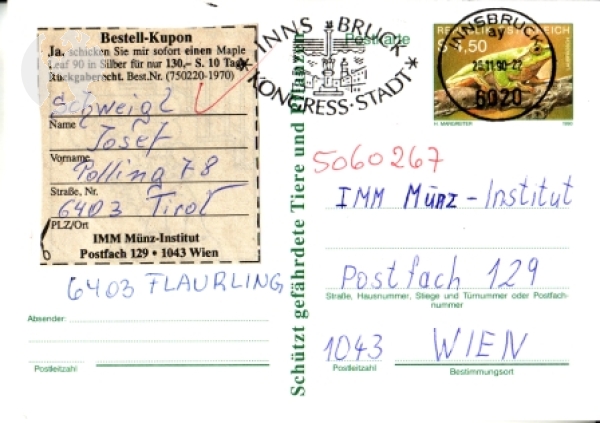 Bestell-Kupon
Ja, schicken Sie mir sofort einen Maple
Leaf 90 in Silber für nur 130,– S. 10 Tage
Rückgaberecht. Best.Nr. (750220-1970)
Schweigl
Name
Josef
Vorname
Polling 78
Straße, Nr.
6403 Tirol
PLZ/Ort
IMM Münz-Institut
Postfach 129 • 1043 Wien
6403 FLAURLING
Absender:
Postleitzahl
Schützt gefährdete Tiere und Pflanzen
INNSBRUCK
KONGRESS-STADT
Postkarte
REPUBLIK ÖSTERREICH
S 5,50
INNSBRUCK
ay
26.11.90-22
6020
H. MARGREITER
1990
5060267
IMM Münz-Institut
Postfach 129
Straße, Hausnummer, Stiege und Türnummer oder Postfach-
nummer
1043 WIEN
Postleitzahl Bestimmungsort